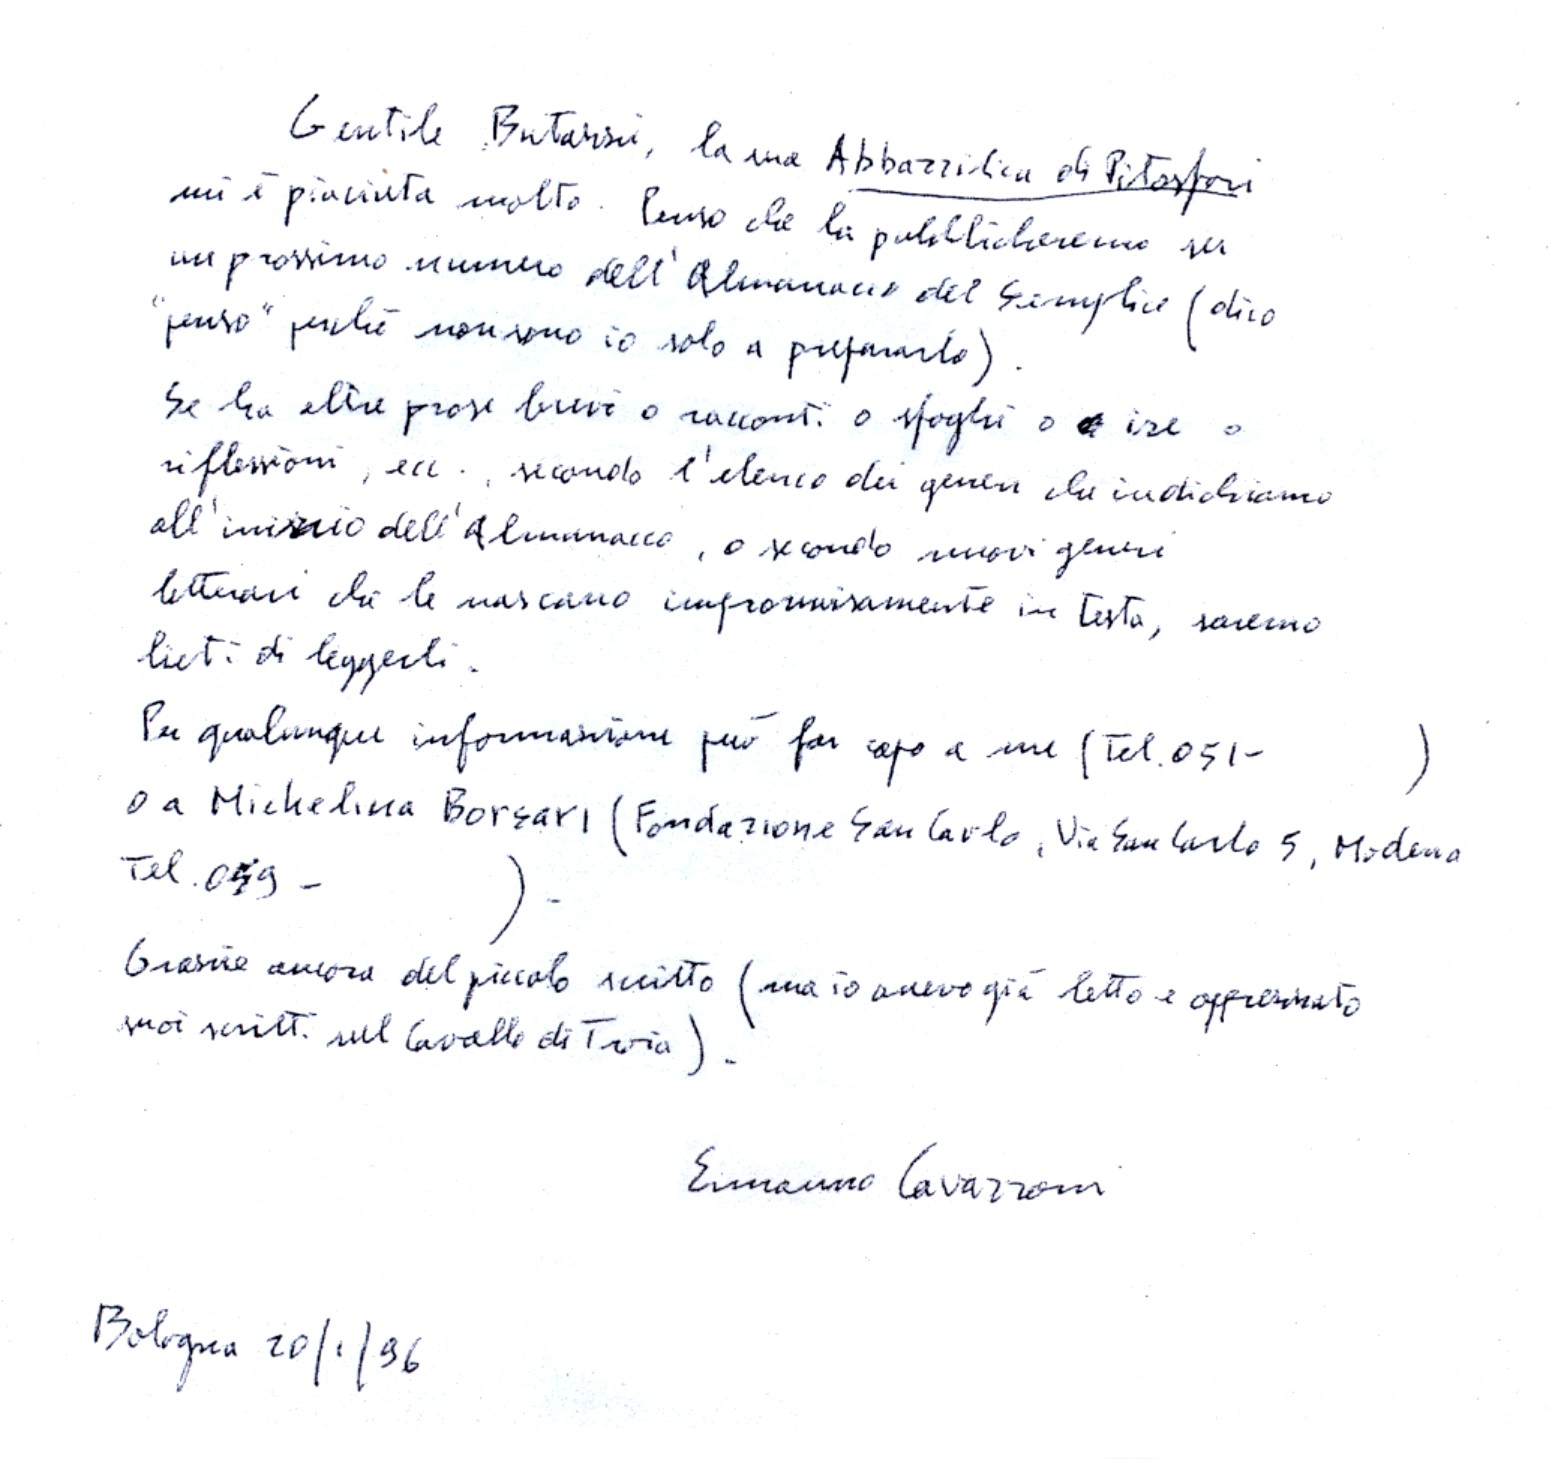 Gentile Butazzi, la sua Abbazzilica di Pitosfori
mi è piaciuta molto. Penso che la pubblicheremo su
un prossimo numero dell'Almanacco del Semplice (dico
"penso" perché non sono io solo a prepararlo).
Se ha altre prose brevi o racconti o sfoghi o ire o
riflessioni, ecc., secondo l'elenco dei generi che indichiamo
all'inizio dell'Almanacco, o secondo nuovi generi
letterari che le nascano improvvisamente in testa, saremo
lieti di leggerli.
Per qualunque informazione può far capo a me (Tel. 051-          )
o a Michelina Borsari (Fondazione San Carlo, Via San Carlo 5, Modena
Tel. 059 -          ).
Grazie ancora del piccolo scritto (ma io avevo già letto e apprezzato
suoi scritti sul Cavallo di Troia).
Ermanno Cavazzoni
Bologna 20/1/96